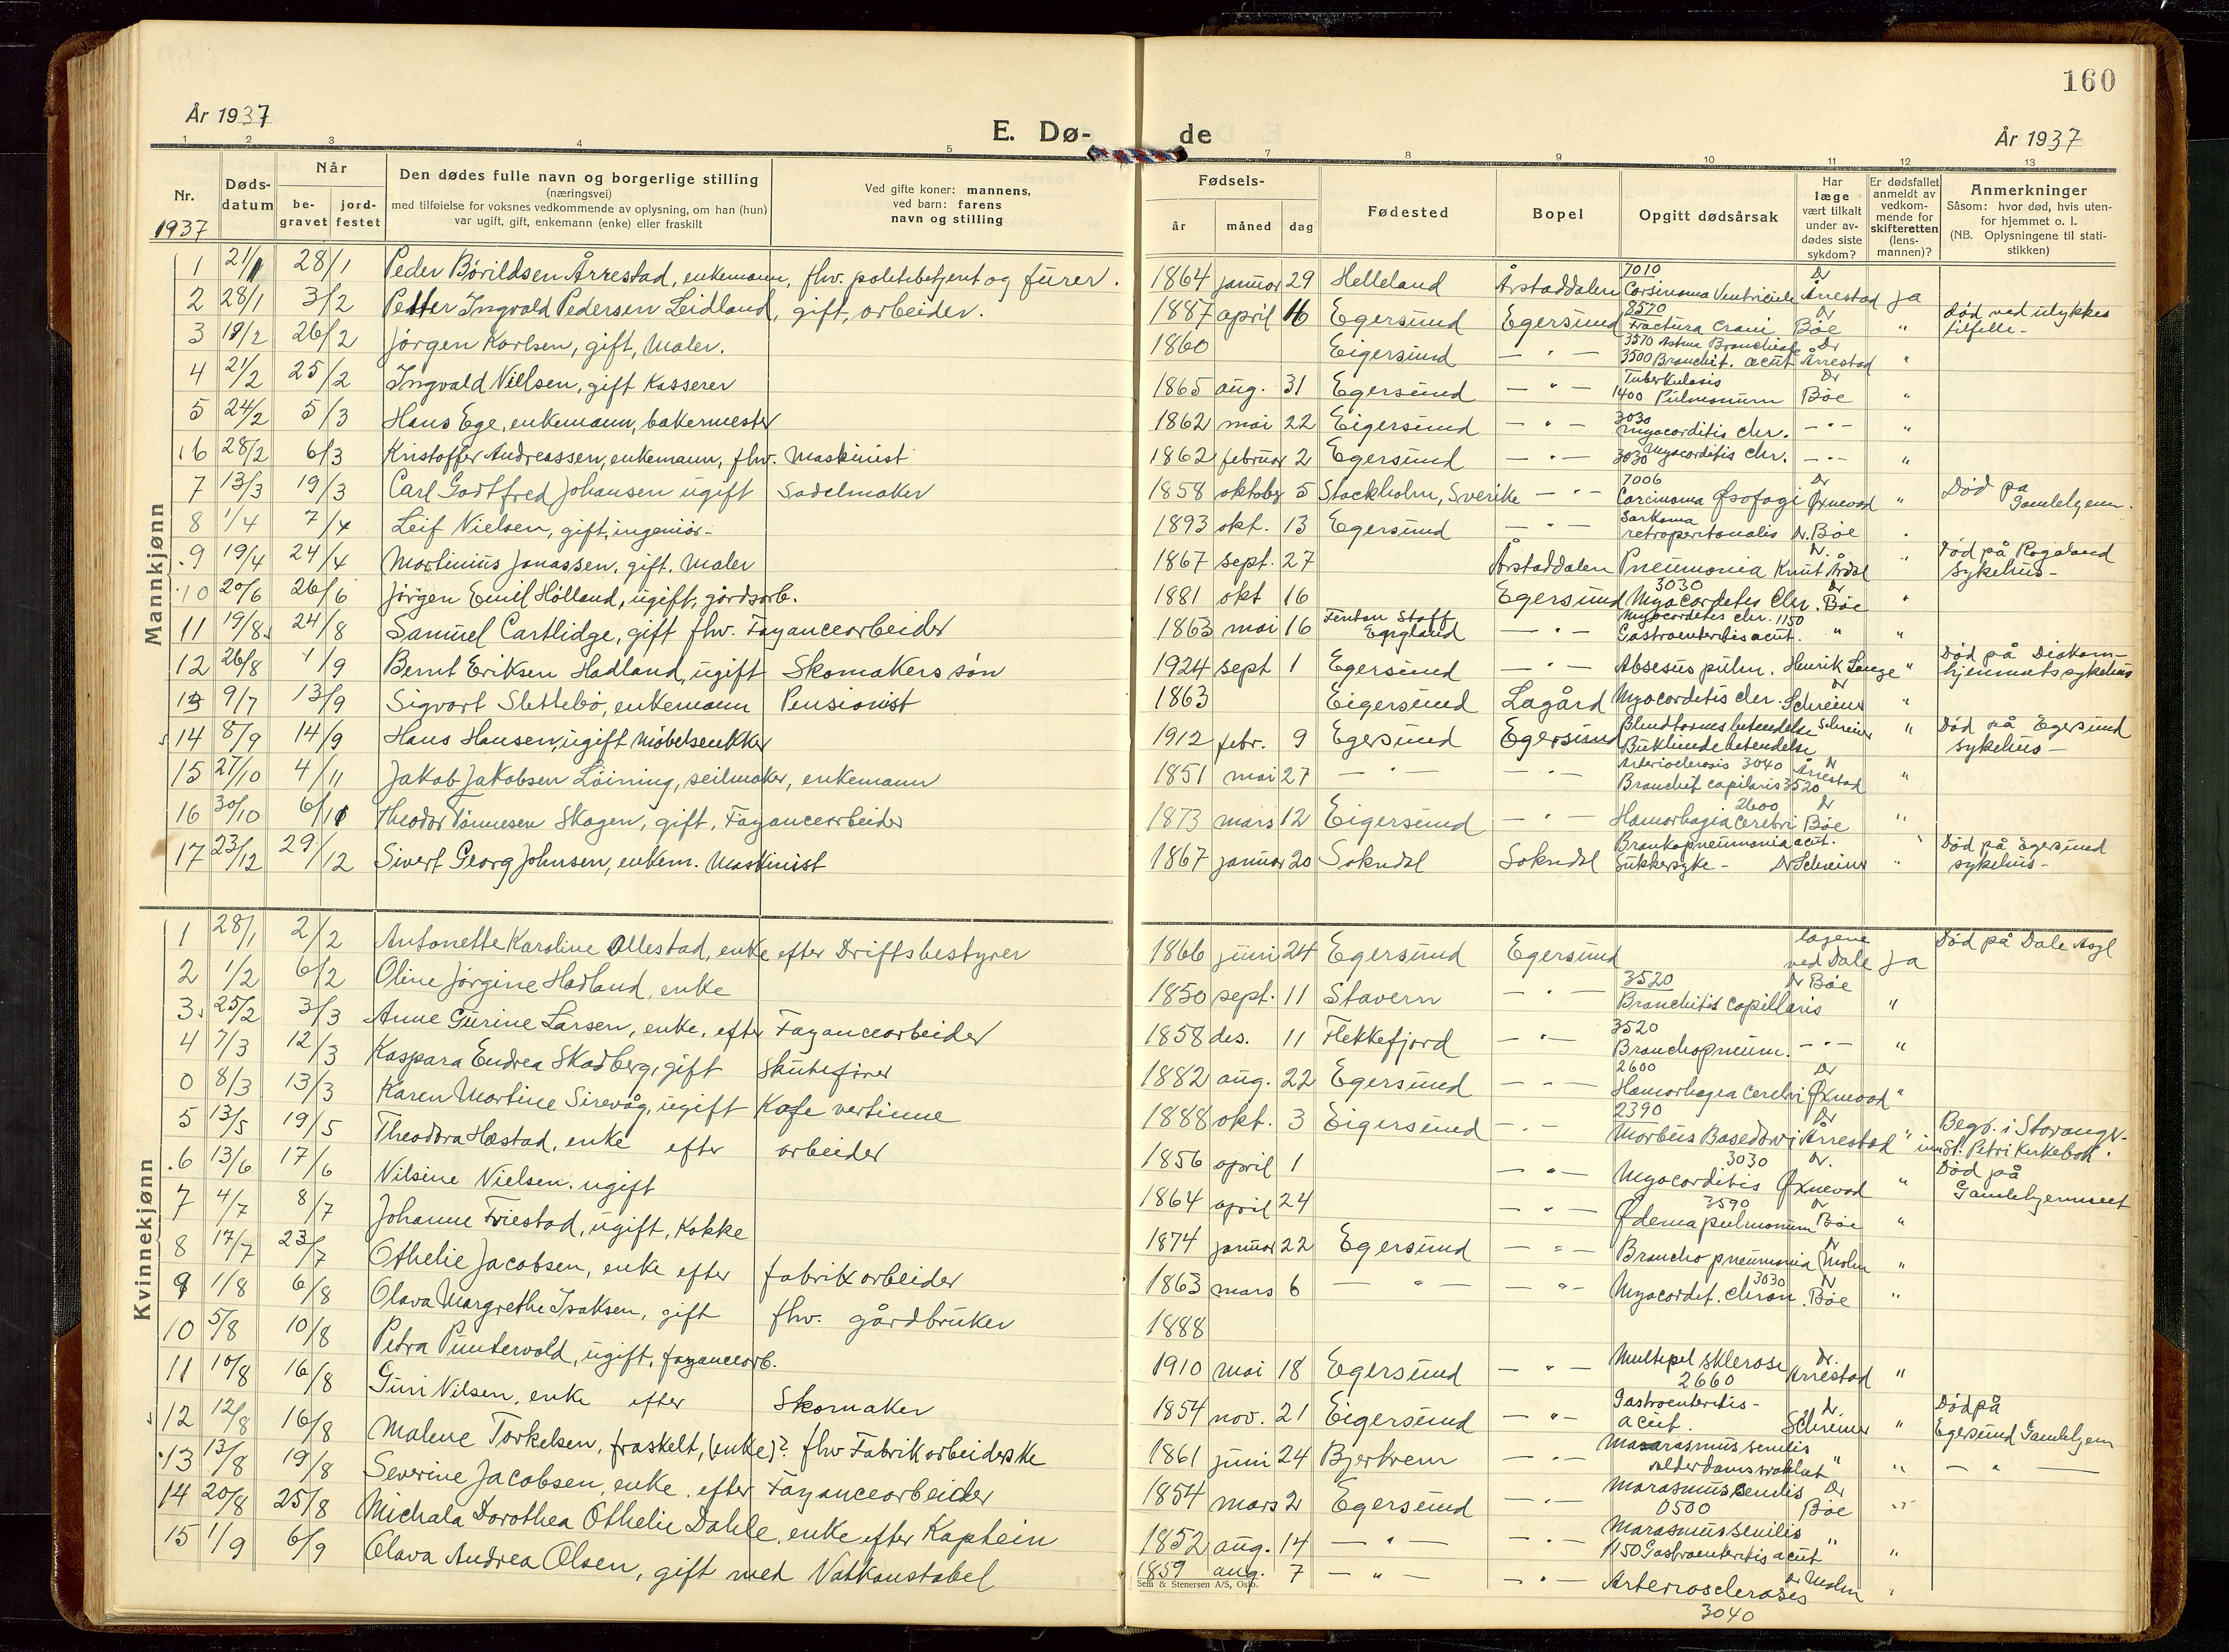 160
År 1937
E. Dø-
de
År 1937
1 2 3 4 5 7 8 9 10 11 12 13
Nr.
Døds-
datum
Når
be-
gravet
jord-
festet
Den dødes fulle navn og borgerlige stilling
(næringsvei)
med tilføielse for voksnes vedkommende av oplysning, om han (hun)
var ugift, gift, enkemann (enke) eller fraskilt
Ved gifte koner: mannens,
ved barn: farens
navn og stilling
Fødsels-
år måned dag
Fødested
Bopel
Opgitt dødsårsak
Har
læge
vært tilkalt
under av-
dødes siste
sykdom?
Er dødsfallet
anmeldt av
vedkom-
mende for
skifteretten
(lens-
mannen)?
Anmerkninger
Såsom: hvor død, hvis uten-
for hjemmet o. l.
(NB. Oplysningene til stati-
stikken)
1937
Mannkjønn
1 21/1 28/1 Peder Børildsen Årrestad, enkemann, fhv. politibetjent og fürer.
2 28/1 3/2 Petter Ingvald Pedersen Leidland, gift, arbeider.
3 19/2 26/2 Jørgen Karlsen, gift, Maler.
4 21/2 25/2 Ingvald Nielsen, gift Kasserer
5 24/2 5/3 Hans Ege, enkemann, bakermester
6 28/2 6/3 Kristoffer Andreassen, enkemann, fhv. Maskinist
7 13/3 19/3 Carl Godtfred Johansen ugift Sadelmaker
8 1/4 7/4 Leif Nielsen, gift, ingeniør-
9 19/4 24/4 Martinius Jonassen, gift. Maler
10 20/6 26/6 Jørgen Emil Hölland, ugift, gårdsarb.
11 19/8 24/8 Samuel Cartlidge, gift fhv. Fayancearbeider
12 26/8 1/9 Bernt Eriksen Hadland, ugift Skomakers søn
13 9/7 13/9 Sigvart Slettebø, enkemann Pensionist
14 8/9 14/9 Hans Hansen, ugift Møbelsnekker
15 27/10 4/11 Jakob Jakobsen Løining, seilmaker, enkemann
16 30/10 6/11 Theodor Tønnesen Skogen, gift, Fayancearbeider
17 23/12 29/12 Sivert Georg Johnsen, enkem. Maskinist
1864 januar 29 Helleland Årstaddalen 7010 Carsinoma Ventriculi Dr Årrestad ja
1887 april 16 Egersund Egersund 8520 Fractura Crani Dr Bøe " død ved ulykkes tilfelle-
1860 Eigersund — " — 3570 Astma Bronchiale 3500 Bronchit. acut Dr Årrestad "
1865 aug. 31 Egersund — " — Tuberkulosis 1400 Pulmonum Dr Bøe "
1862 mai 22 Eigersund — " — 3030 Myocorditis chr. — " — "
1862 februar 2 Egersund — " — 3030 Myocorditis chr. — " — "
1858 oktober 5 Stockholm, Sverike — " — 7006 Carcinoma Øsofagi Dr Øxnevad " Død på Gamlehjem.
1893 okt. 13 Egersund — " — Sarkoma retroperitonalis Dr. Bøe "
1867 sept. 27 Årstaddalen Pneumonia Dr. Knut Årdal " Død på Rogaland Sykehus-
1881 okt 16 Egersund 3030 Myocordetes Chr. Dr Bøe "
1863 mai 16 Fenton Staff England — " — Myocordetes chr. 1150 Gastroenteritis acut. " "
1924 sept 1 Egersund — " — Absesus pulm. Henrik Lange " Død på Diakon-hjemmets sykehus
1863 Eigersund Lagård Myocorditis chr. Dr Schreiner "
1912 febr. 9 Egersund Egersund Blindtarmsbetendelse Bukhindebetendelse Schreiner " Død på Egersund sykehus-
1851 mai 27 — " — — " — Arterioclerosis 3040 Bronchit capilaris 3520 Dr Årrestad "
1873 mars 12 Eigersund — " — 2600 Hamorhagia cerebri Dr Bøe "
1867 januar 20 Sokndal Sokndal Bronkopneumonia acut. Sukkersyke - Dr Schreiner " Død på Egersund sykehus-
Kvinnekjønn
1 28/1 2/2 Antonette Karoline Ollestad, enke efter Driftsbestyrer
2 1/2 6/2 Oline Jørgine Hadland, enke
3 25/2 3/3 Anne Gurine Larsen, enke, efter Fayancearbeider
4 7/3 12/3 Kaspara Endrea Skadberg, gift Skutefører
0 8/3 13/3 Karen Martine Sirevåg, ugift Kafe vertinne
5 13/5 19/5 Theodora Hæstad, enke efter arbeider
6 13/6 17/6 Nilsine Nielsen. ugift
7 4/7 8/7 Johanne Friestad, ugift, Kokke
8 17/7 23/7 Othelie Jacobsen, enke efter fabrikarbeider
9 1/8 6/8 Olava Margrethe Isaksen, gift fhv. gårdbruker
10 5/8 10/8 Petra Puntervold, ugift, fayancearb.
11 10/8 16/8 Guri Nilsen, enke efter Skomaker
12 12/8 16/8 Malene Torkelsen, fraskelt, (enke)? fhv Fabrikarbeiderske
13 13/8 19/8 Severine Jacobsen, enke. efter Fayancearbeider
14 20/8 25/8 Michala Dorothea Othelie Dahle, enke efter Kaptein
15 1/9 6/9 Olava Andrea Olsen, gift med Vaktkonstabel
1866 juni 24 Egersund Egersund lægene ved Dale ja Død på Dale Asyl
1850 sept. 11 Stavern — " — 3520 Bronchitis capillaris Dr Bøe "
1858 des. 11 Flekkefjord — " — 3520 Bronchopneum. — " — "
1882 aug. 22 Egersund — " — 2600 Hamorhagea cerebri Dr Øxnevad "
1888 okt. 3 Eigersund — " — 2390 Morbus Basedowi Dr Årrestad " Begr. i Stavanger. innf. St. Petri Kirkebok.
1856 april 1 — " — 3030 Myocorditis Dr. Øxnevad " Død på Gamlehjemmet
1864 april 24 — " — 3590 Ødema pulmonum Dr Bøe "
1874 januar 22 Egersund — " — Broncho pneumonia Dr Molin "
1863 mars 6 — " — — " — 3030 Myocordit. chron. Dr Bøe "
1888
1910 mai 18 Egersund — " — Multepel sklerose 2660 Dr. Årrestad "
1854 nov. 21 Eigersund — " — Gastroenteritis- acut. Dr. Schreiner " Død på Egersund Gamlehjem
1861 juni 24 Bjerkrem — " — Marasmus senilis alderdomssvakhet " " — " —
1854 mars 2 Egersund — " — Marasmus senilis 0500 Dr Bøe "
1852 aug. 14 — " — — " — Marasmus senilis 1150 Gastroenteritis acut " "
1859 aug. 7 — " — — " — Arteriosclerosis 3040 Dr Molin "
Sem & Stenersen A/S, Oslo.